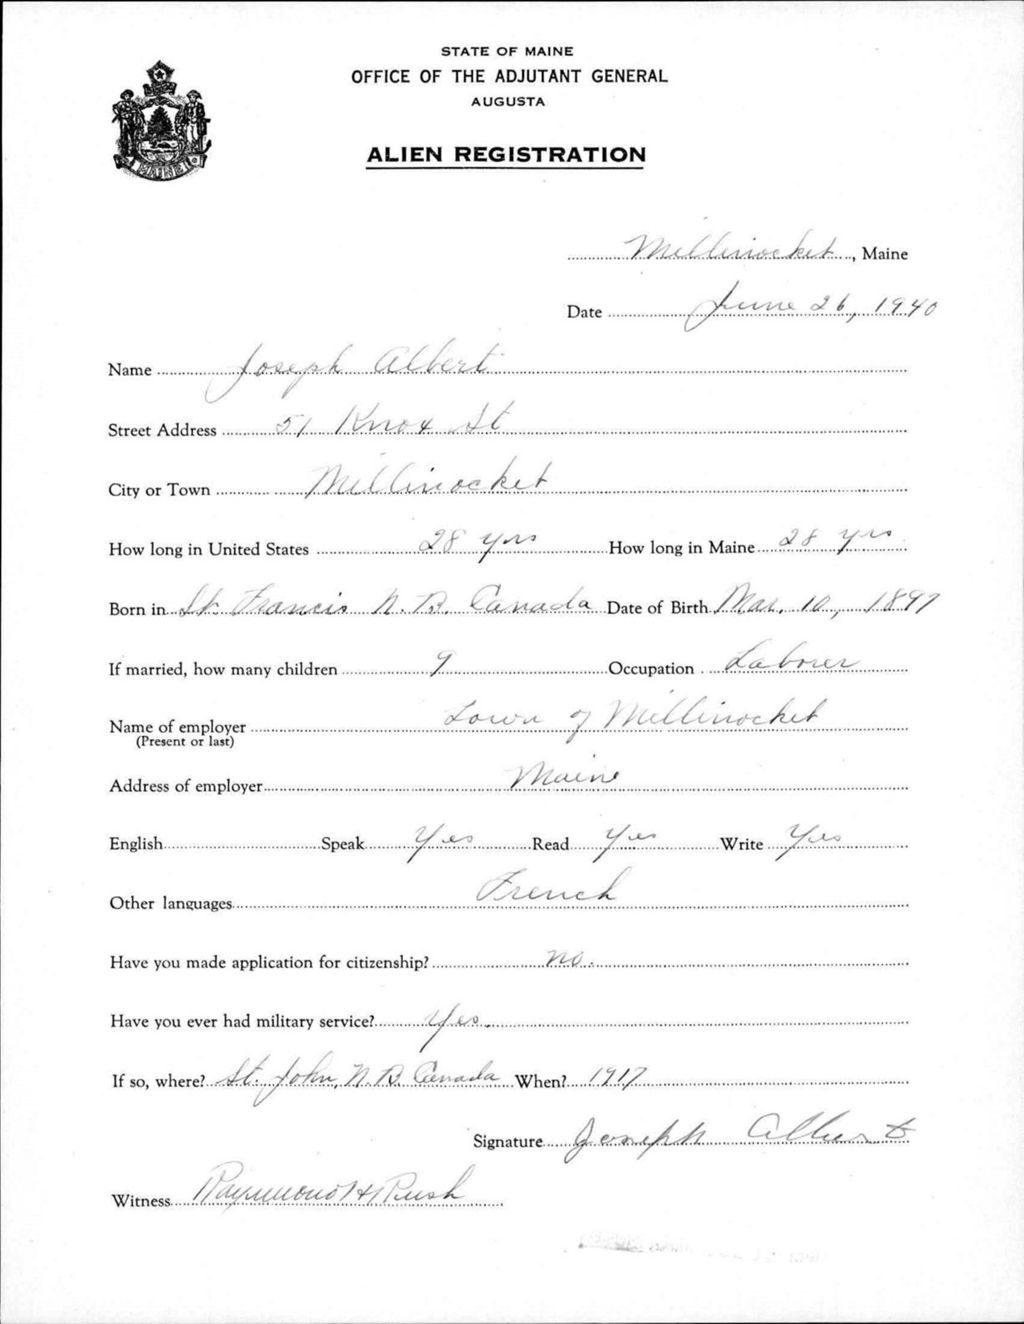 STATE OF MAINE
OFFICE OF THE ADJUTANT GENERAL
AUGUSTA
ALIEN REGISTRATION
MAINE
Millinocket, Maine
Date June 26, 1940
Name Joseph Albert
Street Address 51 Knox St
City or Town Millinocket
How long in United States 28 yrs How long in Maine 28 yrs
Born in St. Francis N. B. Canada Date of Birth Mar. 10, 1897
If married, how many children 9 Occupation Laborer
Name of employer Town of Millinocket
(Present or last)
Address of employer Maine
English Speak Yes Read Yes Write Yes
Other languages French
Have you made application for citizenship? no.
Have you ever had military service? Yes.
If so, where? St. John, N. B. Canada When? 1917
Signature Joseph Albert
Witness Raymond H Rush